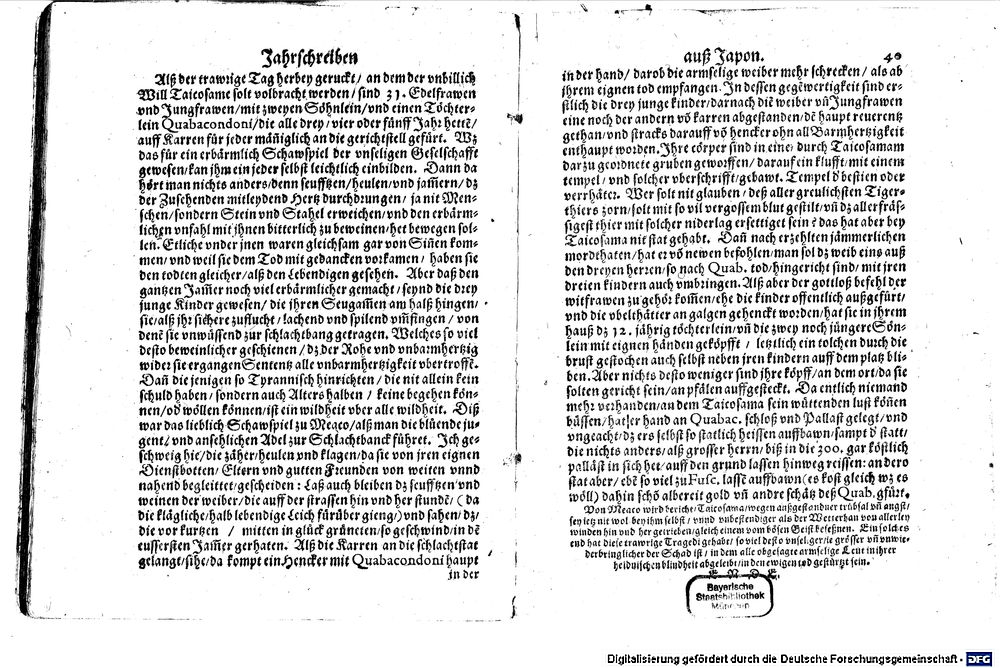 Jahrschreiben
Alß der trawrige Tag herbey geruckt / an dem der vnbillich
Will Taicosame solt volbracht werden / sind 31. Edelfrawen
vnd Jungfrawen / mit zweyen Söhnlein / vnd einen Töchter-
lein Quabacondoni / die alle drey / vier oder fünff Jahr hettē /
auff Karren für jeder mäniglich an die gerichtstell gefürt. Wz
das für ein erbärmlich Schawspiel der vnseligen Geselschafft
gewesen / kan jhm ein jeder selbst leichtlich einbilden. Dann da
hört man nichts anders / denn seufftzen / heulen / vnd jam̄ern / dz
der Zusehenden mitleydend Hertz durchdrungen / ja nit Men-
schen / sondern Stein vnd Stahel erweichen / vnd den erbärm-
lichen vnfahl mit jhnen bitterlich zu beweinen / het bewegen sol-
len. Etliche vnder jnen waren gleichsam gar von Siñen kom-
men / vnd weil sie dem Tod mit gedancken vorkamen / haben sie
den todten gleicher / alß den Lebendigen gesehen. Aber daß den
gantzen Jam̄er noch viel erbärmlicher gemacht / seynd die drey
junge Kinder gewesen / die jhren Seugam̄en am halß hingen /
sie / alß jhr sichere zuflucht / lachend vnd spilend vm̄fingen / von
denē sie vnwüssend zur schlachtbang getragen. Welches so viel
desto beweinlicher geschienen / dz der Rohe vnd vnbarmhertzig
wider sie ergangen Sententz alle vnbarmhertzigkeit vbertroffē.
Dañ die jenigen so Tyrannisch hinrichten / die nit allein kein
schuld haben / sondern auch Alters halben / keine begehen kön-
nen / oď wöllen können / ist ein wildheit vber alle wildheit. Diß
war das lieblich Schawspiel zu Meaco / alß man die blüende ju-
gent / vnd ansehlichen Adel zur Schlachtbanck führet. Ich ge-
schweig hie / die zäher / heulen vnd klagen / da sie von jren eignen
Dienstbotten / Eltern vnd gutten Freunden von weiten vnnd
nahend begleittet / gescheiden: Laß auch bleiben dz seufftzen / vnd
weinen der weiber / die auff der strassen hin vnd her stundē / (da
die klägliche / halb lebendige Leich fürüber gieng /) vnd sahen / dz /
die vor kurtzen / mitten in glück grüneten / so geschwind / in dē
eussersten Jam̄er gerhaten. Alß die Karren an die schlachtstat
gelangt / sihe / da kompt ein Hencker mit Quabacondoni haupt
in der
auß Japon. 40
in der hand / darob die armselige weiber mehr schrecken / als ab
jhrem eignen tod empfangen. In dessen gegēwertigkeit sind er-
stlich die drey junge kinder / darnach die weiber vñ Jungfrawen
eine noch der andern vō karren abgestanden / dē haupt reuerentz
gethan / vnd stracks darauff vō hencker ohn all Barmhertzigkeit
enthaupt worden. Ihre cörper sind in eine / durch Taicosamam
darzu geordnete gruben geworffen / darauf ein klufft / mit einem
tempel / vnd solcher vberschrifft / gebawt. Tempel ď bestien oder
verrhäter. Wer solt nit glauben / deß aller greulichsten Tiger-
thiers zorn / solt mit so vil vergossem blut gestilt / vñ dz allerfräs-
sigest thier mit solcher niderlag ersettiget sein? das hat aber bey
Taicosama nit stat gehabt. Dañ nach erzehlten jämmerlichen
mordthaten / hat er vō newen befohlen / man sol dz weib eins auß
den dreyen herren / so nach Quab. tod / hingericht sind / mit jren
dreien kindern auch vmbringen. Alß aber der gottloß befehl der
witfrawen zu gehör kom̄en / ehe die kinder offentlich außgefürt /
vnd die vbelthäter an galgen gehenckt worden / hat sie in jhrem
hauß dz 12. jährig töchterlein / vñ die zwey noch jüngere Sön-
lein mit eignen händen geköpfft / letzlich ein tolchen durch die
brust gestochen auch selbst neben jren kindern auff dem platz bli-
ben. Aber nichts desto weniger sind jhre köpff / an dem ort / da sie
solten gericht sein / an pfälen auffgesteckt. Da entlich niemand
mehr verhanden / an dem Taicosama sein wüttenden lust köñen
büssen / hat er hand an Quabac. schloß vnd Pallast gelegt / vnd
vngeacht / dz ers selbst so statlich heissen auffbawn / sampt ď statt /
die nichts anders / alß grosser herrn / biß in die 300. gar köstlich
palläst in sich het / auff den grund lassen hinweg reissen: an dero
stat aber / ebē so viel zu Fusc. lassē auffbawn (es kost gleich wz es
wöll) dahin schō albereit gold vñ andre schätz deß Quab. gfürt.
Von Meaco wird bericht / Taicosama / wegen außgestandner trübsal vñ angst /
sey jetz nit wol bey ihm selbst / vnnd vnbestendiger als der Wetterhan von allerley
winden hin vnd her getrieben / gleich einem vom bösen Geist beseßnen. Ein solches
end hat diese trawrige Tragedi gehabt / so viel desto vnseliger / je grösser vñ vnwie-
derbringlicher der Schad ist / in dem alle obgesagte armselige Leut in ihrer
heidnischen blindheit abgeleibt / in den ewigen tod gestürtzt sein.
E N D E.
Bayerische
Staatsbibliothek
München
Digitalisierung gefördert durch die Deutsche Forschungsgemeinschaft - DFG